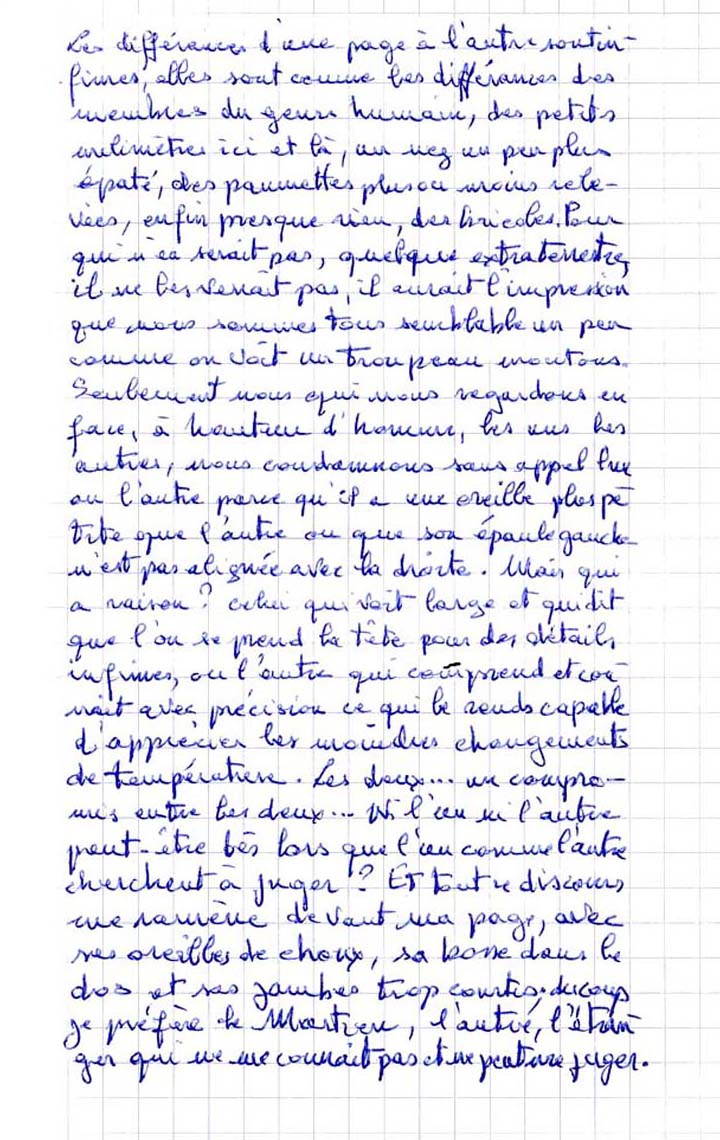 Les différences d'une page à l'autre sont in-
fimes, elles sont comme les différences des
membres du genre humain, des petits
milimètres ici et là, un nez un peu plus
épaté, des paumettes plus ou moins rele-
vées, enfin presque rien, des bricoles. Pour
qui n'en serait pas, quelque extraterrestre,
il ne les verrait pas, il aurait l'impression
que nous sommes tous semblable un peu
comme on voit un troupeau moutons.
Seulement nous qui nous regardons en
face, à hauteur d'homme, les uns les
autres, nous condamnons sans appel l'un
ou l'autre parce qu'il a une oreille plus pe
tite que l'autre ou que son épaule gauche
n'est pas alignée avec la droite. Mais qui
a raison ? celui qui voit large et qui dit
que l'on se prend la tête pour des détails
infimes, ou l'autre qui comprend et con
nait avec précision ce qui le rends capable
d'apprécier les moindres changements
de température. Les deux... un compro-
mis entre les deux... Ni l'un ni l'autre
peut-être dès lors que l'un comme l'autre
cherchent à juger ? Et tout ce discours
me ramène devant ma page, avec
ses oreilles de choux, sa bosse dans le
dos et ses jambes trop courtes. du coup
je préfère le Martien, l'autre, l'étran
ger qui ne me connait pas et ne peut me juger.